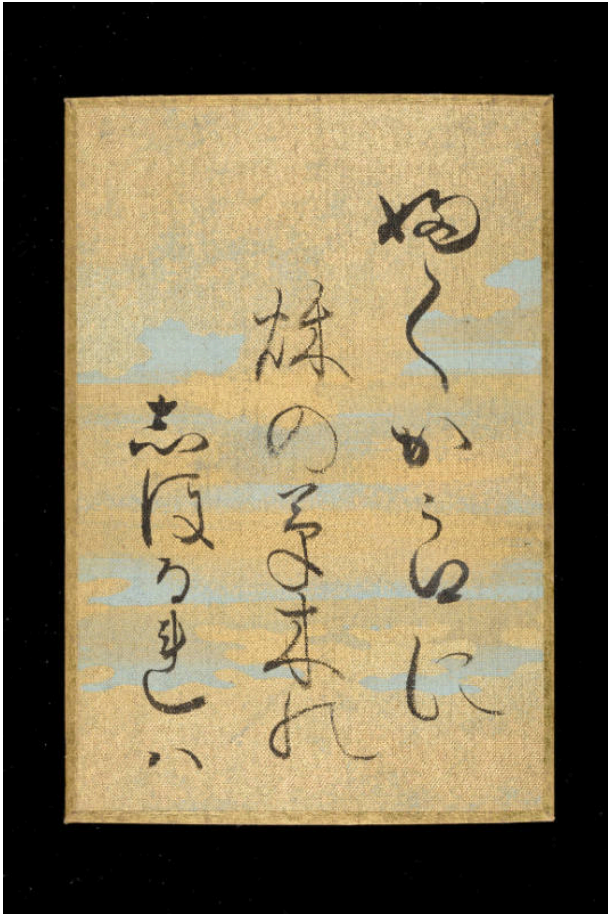 吹くからに
秋の草木の
志ほるれハ